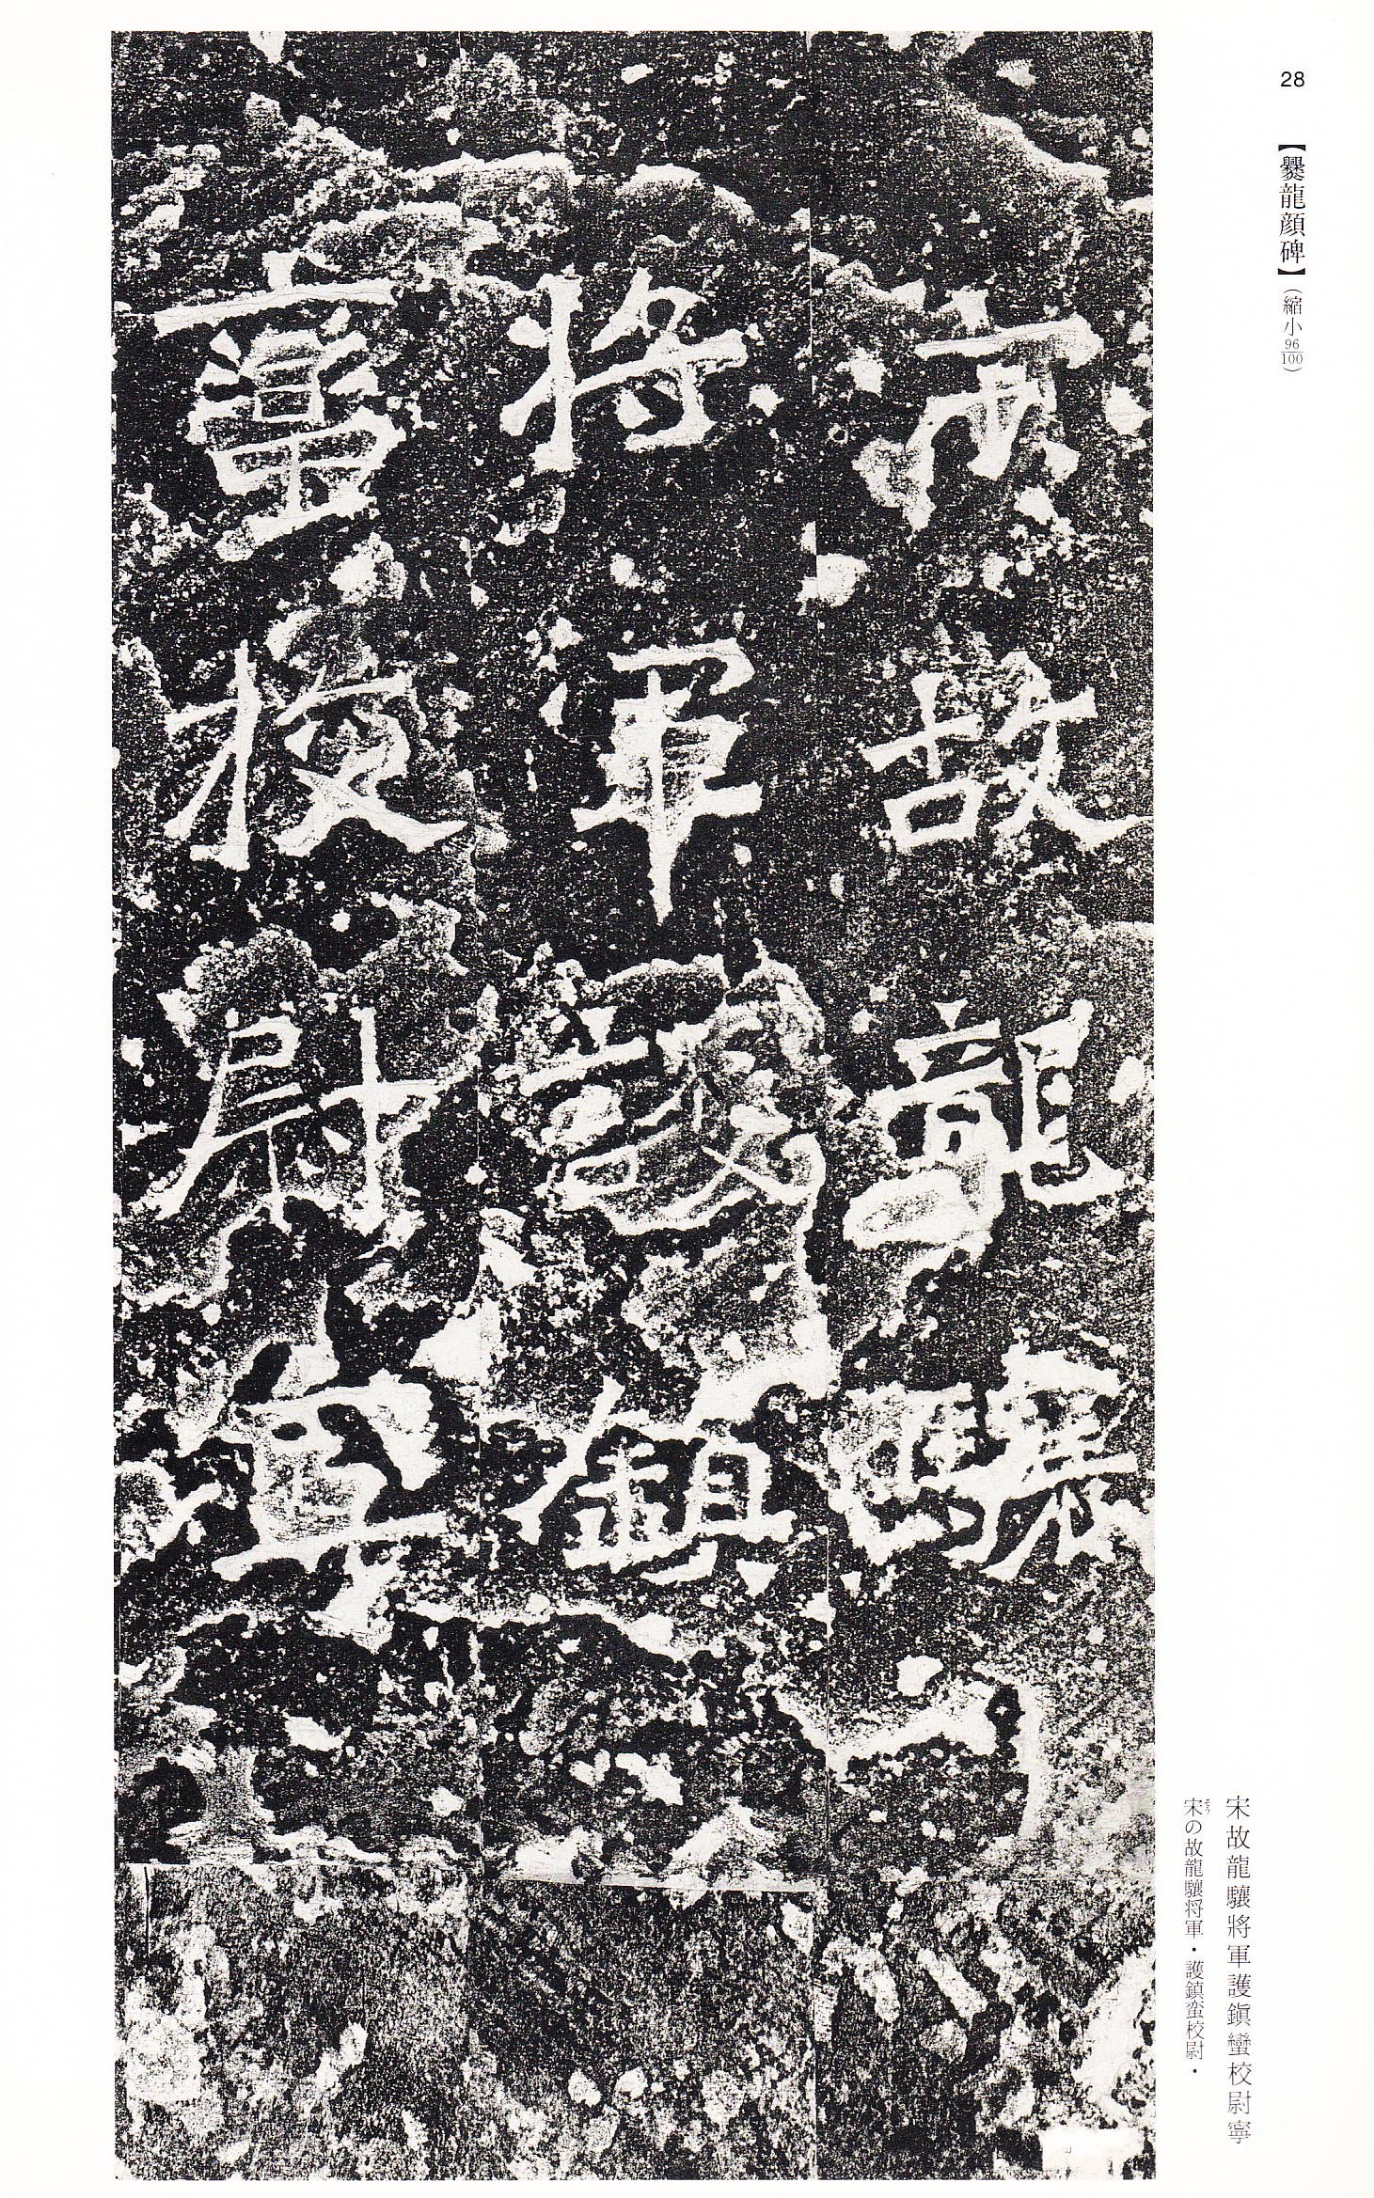 28
【爨龍顔碑】(縮小96/100)
宋故龍驤
將軍護鎮
蠻校尉寧
宋故龍驤將軍護鎭蠻校尉寧
宋の故龍驤将軍・護鎮蛮校尉・
そう